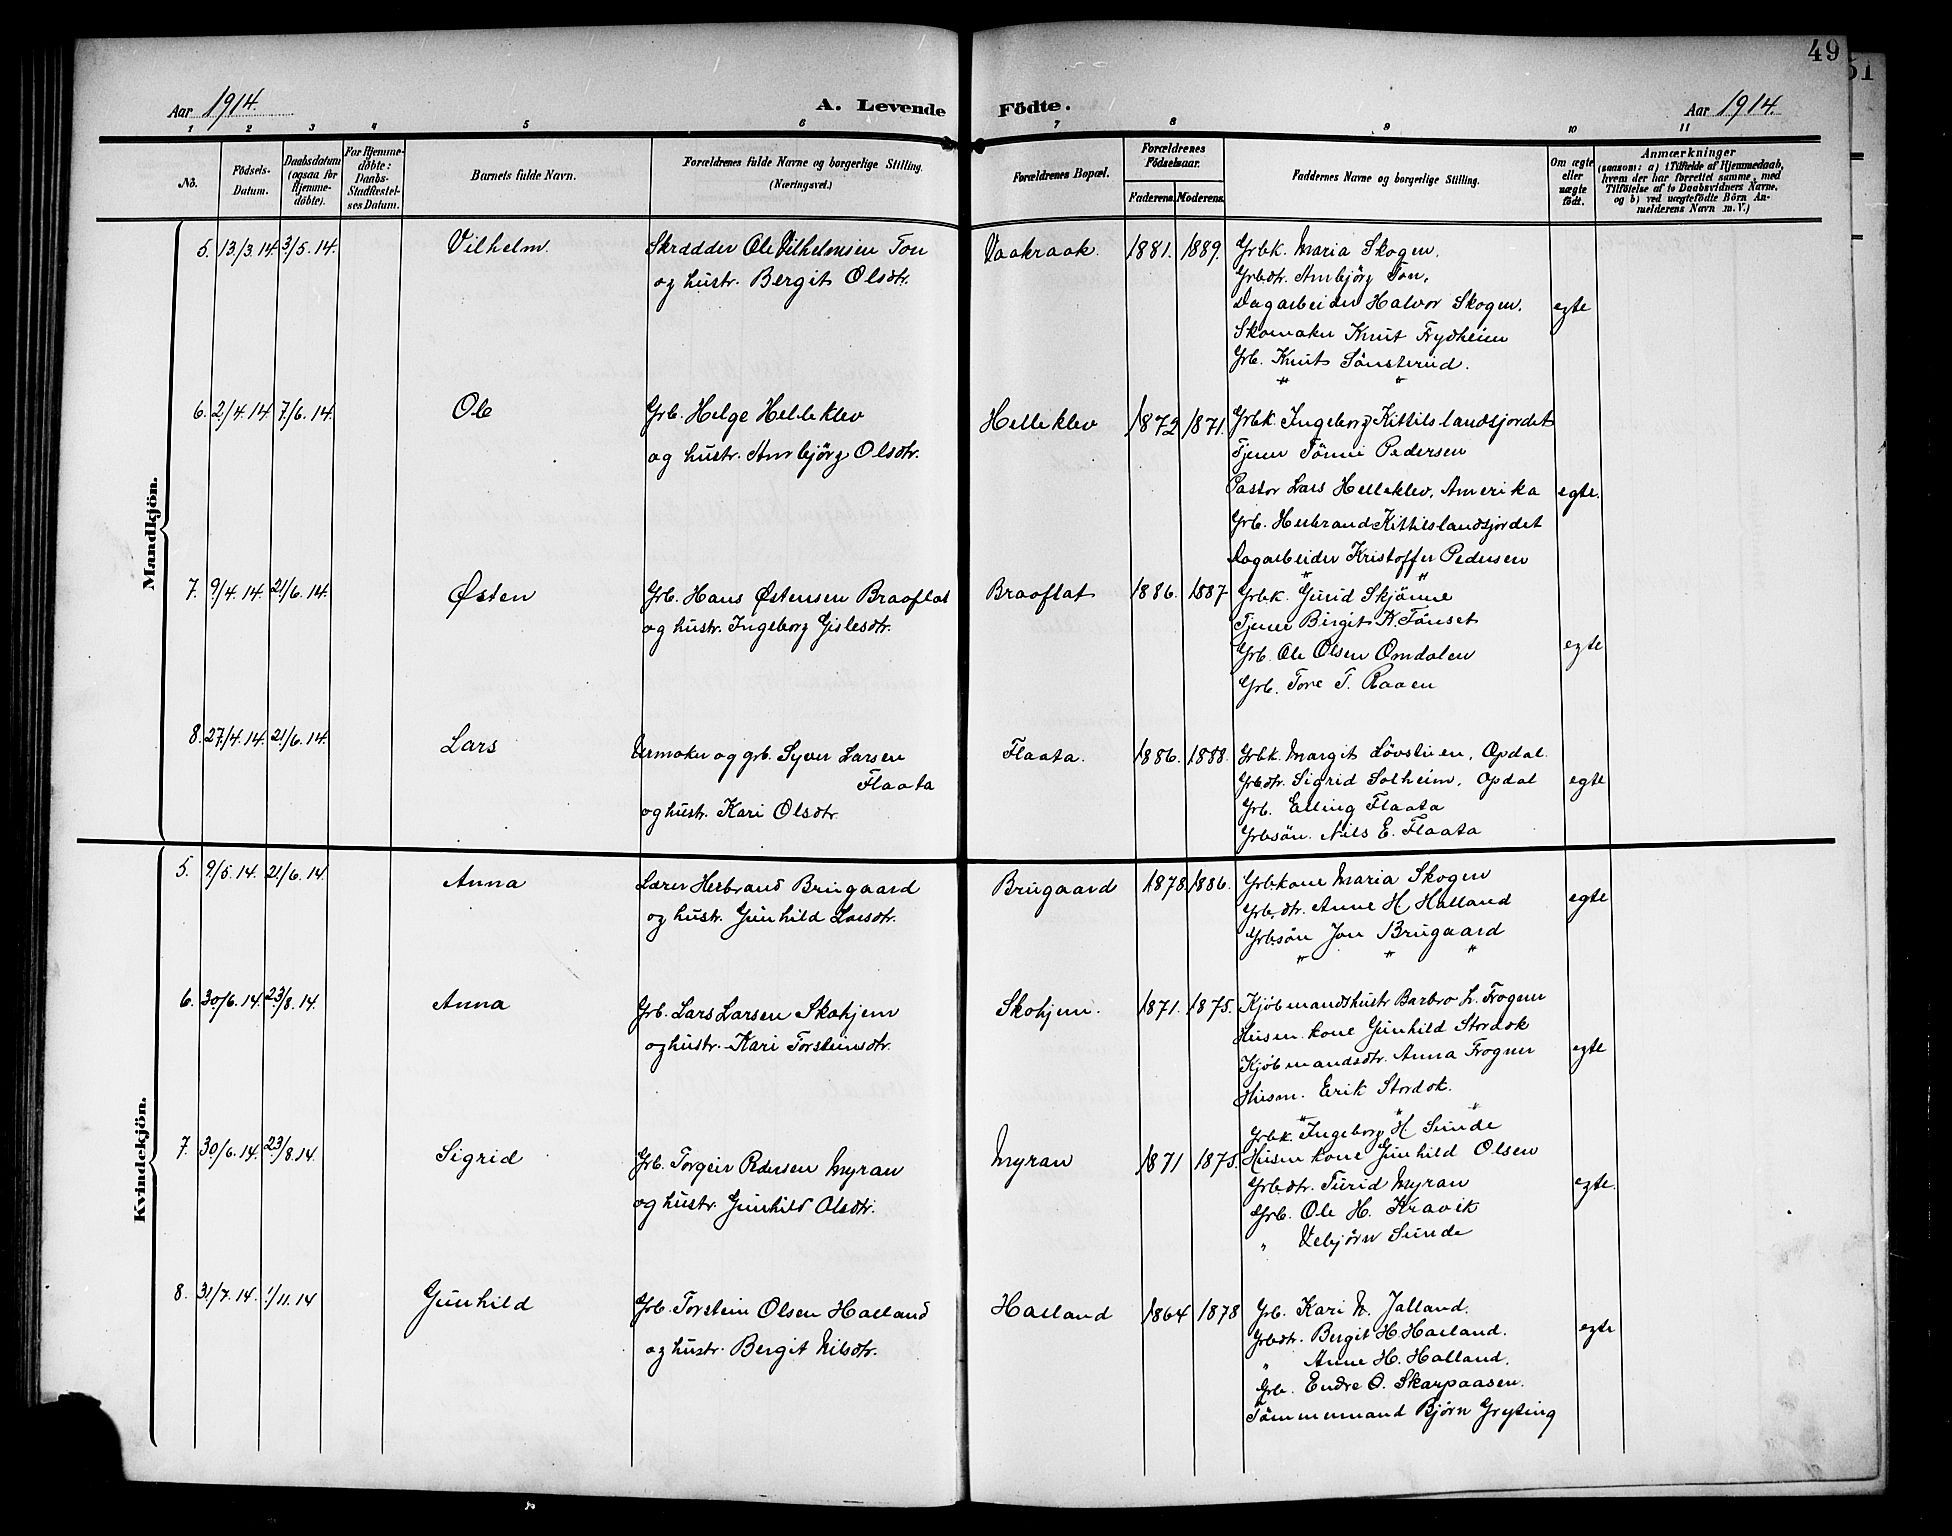 49
51
Aar 1914.
A. Levende Födte.
Aar 1914.
1 2 3 4 5 6 7 8 9 10 11
No.
Födsels-Datum.
Daabsdatum (ogsaa for Hjemme-döbte).
For Hjemme-döbte: Daabs-Stadfæstel-ses Datum.
Barnets fulde Navn.
Forældrenes fulde Navne og borgerlige Stilling.
(Næringsvei.)
Forældrenes Bopæl.
Forældrenes Födselsaar.
Faderens. Moderens.
Faddernes Navne og borgerlige Stilling.
Om ægte eller uægte födt.
Anmærkninger
(saasom: a) i Tilfælde af Hjemmedaab, hvem der har forrettet samme, med Tilföielse af to Daabsvidners Navne, og b) ved uægtefödte Börn An-melderens Navn m. V.)
Mandkjön.
5. 13/3.14. 3/5.14. Vilhelm. Skrædder Ole Vilhelmsen Ton Vaakraak. 1881. 1889. Grbk. Maria Skogen.
og hustr. Bergit Olsdtr. Grbdtr. Ambjörg Ton.
Dagarbeider Halvor Skogen. egte
Skomaker Knut Frydheim
Grb. Knut Sönsterud.
" "
6. 2/4.14 7/6.14. Ole Grb. Helge Helleklev Helleklev 1872 1871. Grbk. Ingeborg Kittilslandsjordet
og hustr. Ambjörg Olsdtr. Tjener Tönni Pedersen
Pastor Lars Helleklev, Amerika egte.
Grb. Herbrand Kittilslandsjordet
Dagarbeider Kristoffer Pedersen
" "
7. 9/4.14. 21/6.14. Østen Grb. Hans Østensen Braaflat Braaflat 1886. 1887. Grbk. Gurid Skjönne
og hustr. Ingeborg Gislesdtr. Tjener Birgit K. Tönset
Grb. Ole Olsen Omdalen egte
Grb. Tore T. Raaen
8. 27/4.14. 21/6.14. Lars Urmaker og grb. Syver Larsen Flaata. 1886. 1888. Grbk. Margit Lövstuen, Opdal.
Flaata Grbdtr. Sigrid Solheim, Opdal egte
og hustr. Kari Olsdtr. Grb. Elling Flaata
Grbsön. Nils E. Flaata
Kvindekjön.
5. 9/5.14. 21/6.14. Anna Lærer Herbrand Brugaard Brugaard 1878. 1886. Grbkone Maria Skogen
og hustr. Gunhild Larsdtr. Grb.dtr. Anne H Halland egte
Grbsön Jon Brugaard
" " "
6. 30/6.14. 23/8.14. Anna Grb. Lars Larsen Skohjem Skohjem. 1871. 1875. Kjöbmandshustr Barbro L. Frogner
og hustr. Kari Torsteinsdtr. Husm. kone Gunhild Stordok
Kjöbmandsdtr. Anna Frogner egte
Husm. Erik Stordok.
" " "
Grbk. Ingeborg H. Sunde
7. 30/6.14. 23/8.14. Sigrid Grb. Torgeir Pedersen Myran Myran 1871 1875. Husm kone Gunhild Olsen
og hustr. Gunhild Olsdtr. Grbdtr. Turid Myran egte.
Grb. Ole H. Kravik
" Vebjørn Sunde
8. 31/7.14. 1/11.14 Gunhild Grb. Torstein Olsen Halland Halland 1864 1878 Grb. Kari N. Jalland.
og hustr. Bergit Nilsdtr. Grbdtr. Bergit H. Halland. egte
" Anne H. Halland.
Grb. Endre O. Skarpaasen.
Tömmermand Bjørn Gryting